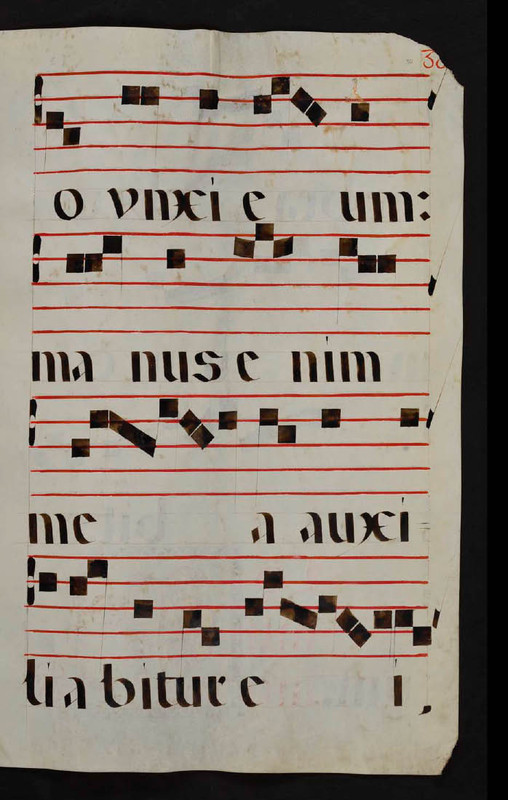 o vnxi e um:
ma nus e nim
me a auxi=
lia bitur e i,